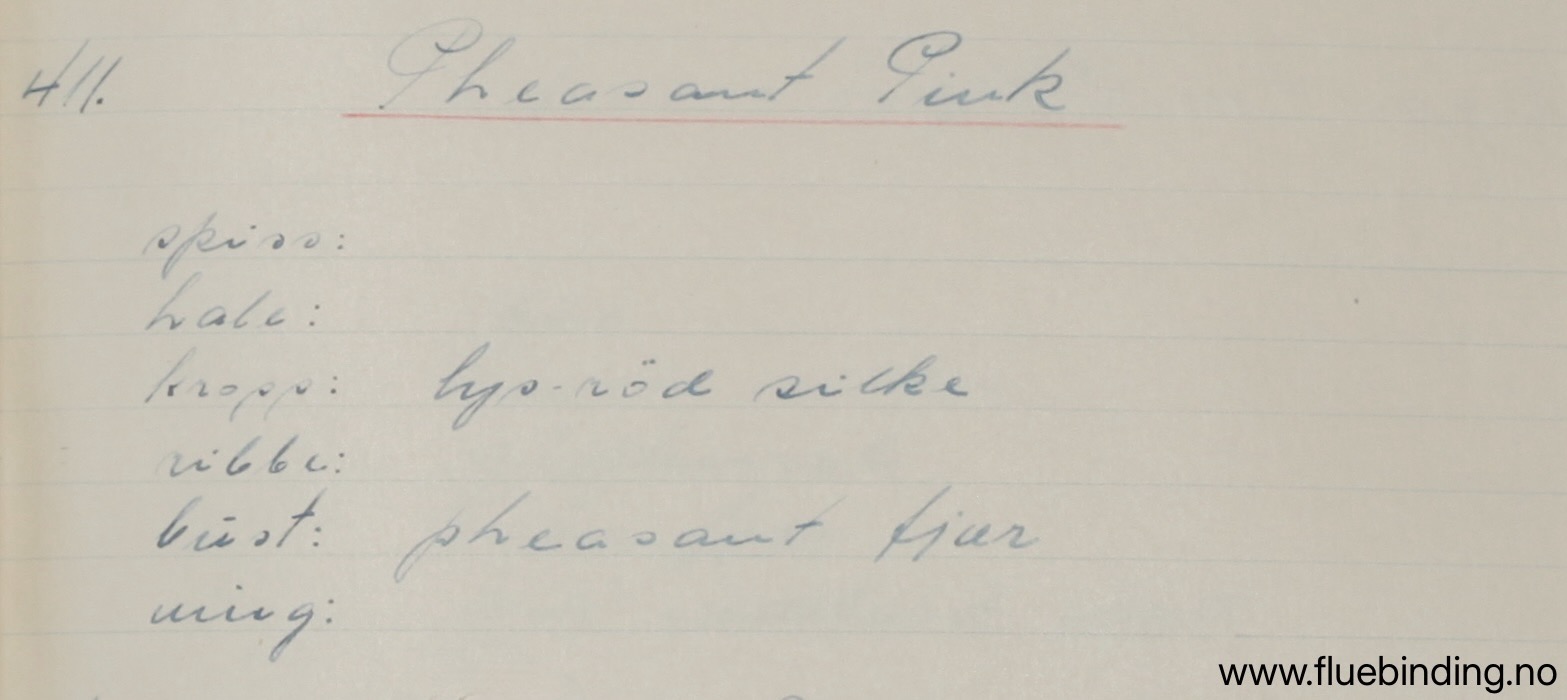 411. Pheasant Pink
spiss:
hale:
kropp: lys-röd silke
ribbe:
büst: pheasant fjær
ving:
www.fluebinding.no